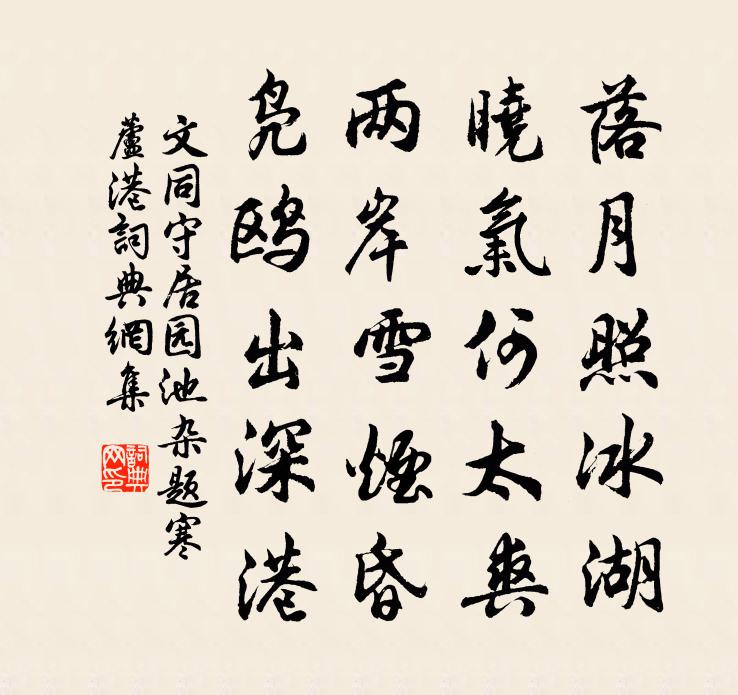 落月照冰湖
曉氣何太爽
两岸雪煙昏
凫鸥出深港
文同守居园池杂题寒
蘆港詞典網集
詞典网印